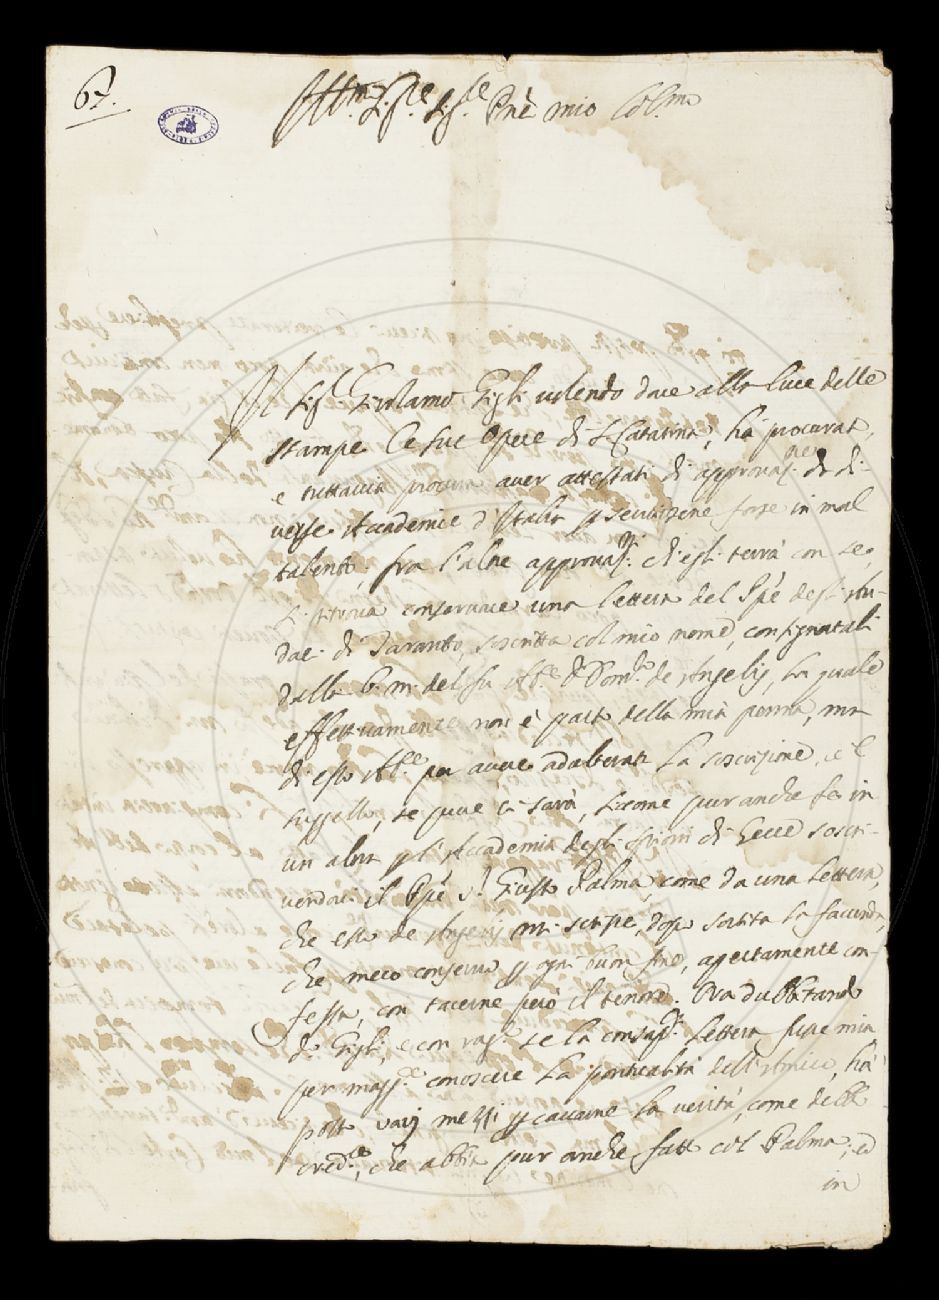 67.
Ill.mo Sig.re Sig.re Pñe mio Col.mo
Il Sig.r Girolamo Gigli volendo dare alla luce delle
stampe le sue Opere di S. Catarina, ha procurato,
e tuttavia procura aver attestati di approvaz.ne da di-
verse Accademie d'Italia p servirsene forse in mal
talento. fra l'altre approvaz.ni ch'egli terrà con se,
si trova conservare una lettera del Spe degli Au-
daci di Taranto, soscritta col mio nome, consignatali
dalla b. m. del fu Ab.e D. Dom.co de Angelis, la quale
effettivamente non è parto della mia penna, ma
di esso Ab.e per avere adulterata la soscrizione, e 'l
suggello, se pure ci sarà, siccome pur anche fè in
un altra p l'Accademia degli Spioni di Lecce soscri-
vendoci il Ppe S.r Giusto Palma, come da una lettera,
che esso de Angelis mi scrisse, dopo sortita la facenda,
che meco conservo p ogni buon fine, apertamente con-
fessa, con tacerne però il tenore. Ora dubbitando
il Gigli, e con rag.e se la consap.a lettera fusse mia
per magg.te conoscere la puntualità dell'Amico, hà
posto varj mezzi p cavarne la verità, come debbo
cred.e, che abbia pur anche fatto col Palma, ed
in